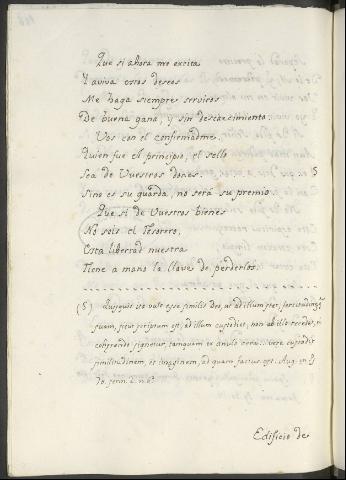 Que si ahora me excita
Y aviva estos deseos
Me haga siempre serviros
De buena gana, y sin descaecimiento
Vos con él confirmadme.
Quien fue el principio, el sello
Sea de Vuestros dones 5
Sino es su guarda, no será su premio.
Que si de Vuestros bienes
No sois el Tesorero,
Esta libertad nuestra
Tiene a mano la llave de perderlos.
(5) Quisquis ita vult esse similis Deo, ut ad illum stet, fortitudinem
suam, sicut scriptum est, ad illum custodiet, non ab illo recedat,
cohaerendo signetur, tanquam ex anulo cera
similitudinem, et imaginem, ad quam factus est. Aug. in
70. serm. 2. n. 6.
Edificio de